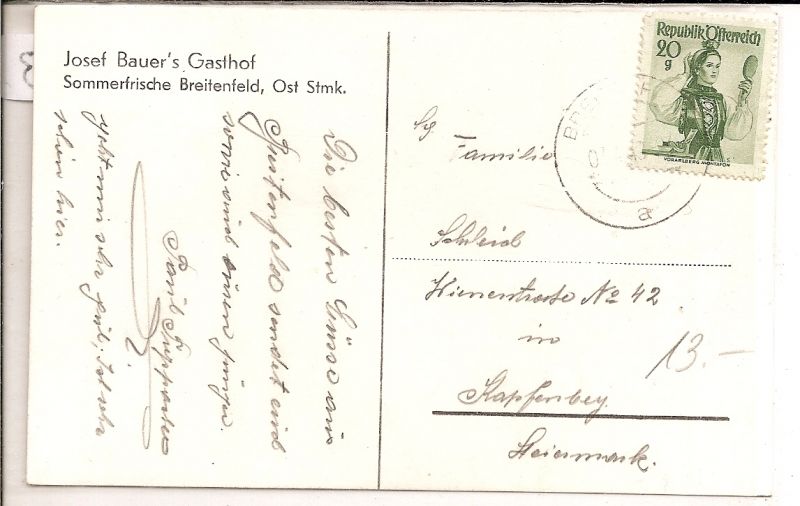 Josef Bauer's Gasthof
Sommerfrische Breitenfeld, Ost Stmk.
Die besten Grüsse aus
Breitenfeld sendet euch
sowie und euren
Familie
geht mir sehr gut, ist sehr
schön hier.
Republik Österreich
20
g
VORARLBERG MONTAFON
BREI
a
Familie
Schleich
Wienerstrasse No 42
in
Kapfenberg
Steiermark.
13.-